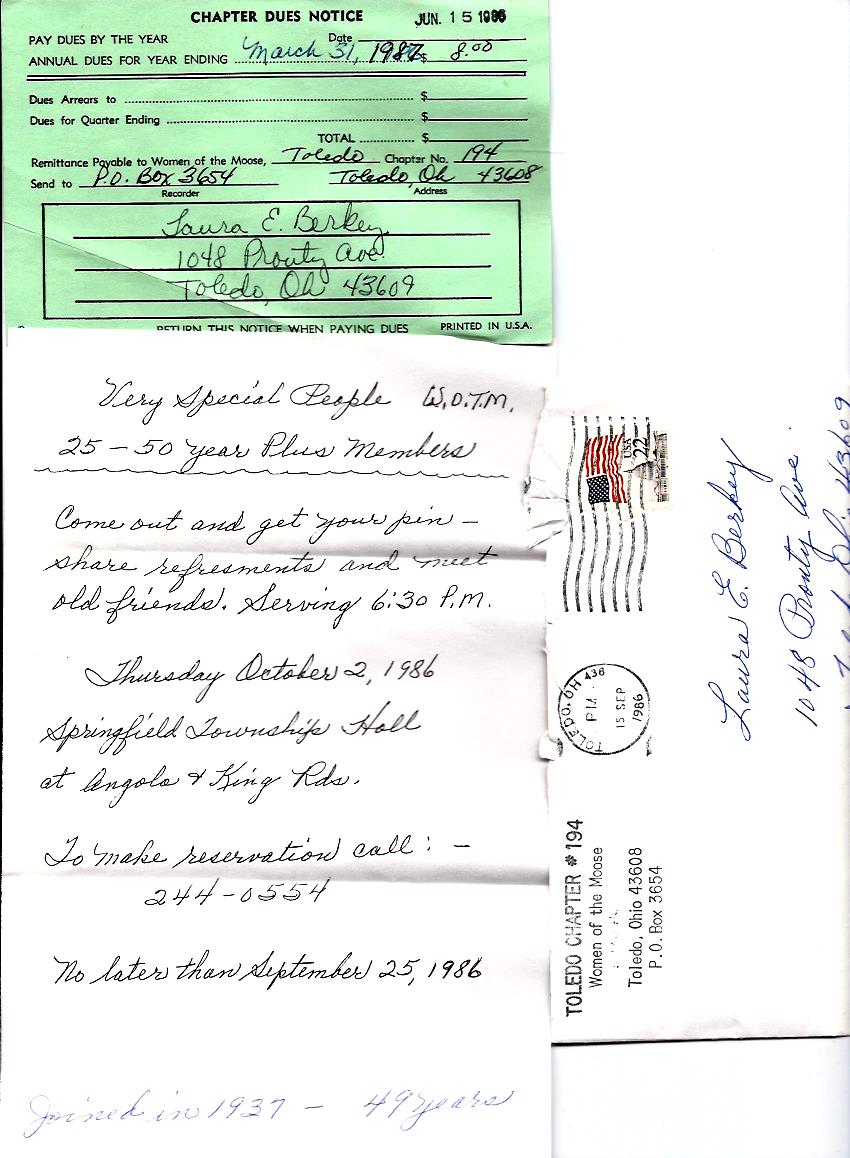 CHAPTER DUES NOTICE
JUN. 15 1986
PAY DUES BY THE YEAR Date
ANNUAL DUES FOR YEAR ENDING March 31, 1987 $ 8.00
Dues Arrears to $
Dues for Quarter Ending $
TOTAL $
Remittance Payable to Women of the Moose, Toledo Chapter No. 194
Send to P.O. Box 3654 Toledo, Oh 43608
Recorder Address
Laura E. Berkey
1048 Prouty Ave.
Toledo, Oh 43609
RETURN THIS NOTICE WHEN PAYING DUES PRINTED IN U.S.A.
Very Special People W.O.T.M.
25 - 50 year Plus Members
Come out and get your pin -
share refresments and meet
old friends. Serving 6:30 P.M.
Thursday October 2, 1986
Springfield Township Hall
at Angola & King Rds.
To make reservation call: -
244-0554
No later than September 25, 1986
Joined in 1937 - 49 years
USA 22
TOLEDO, OH 436
PM
15 SEP
1986
TOLEDO CHAPTER #194
Women of the Moose
Toledo, Ohio 43608
P.O. Box 3654
Laura E. Berkey
1048 Prouty Ave.
43609